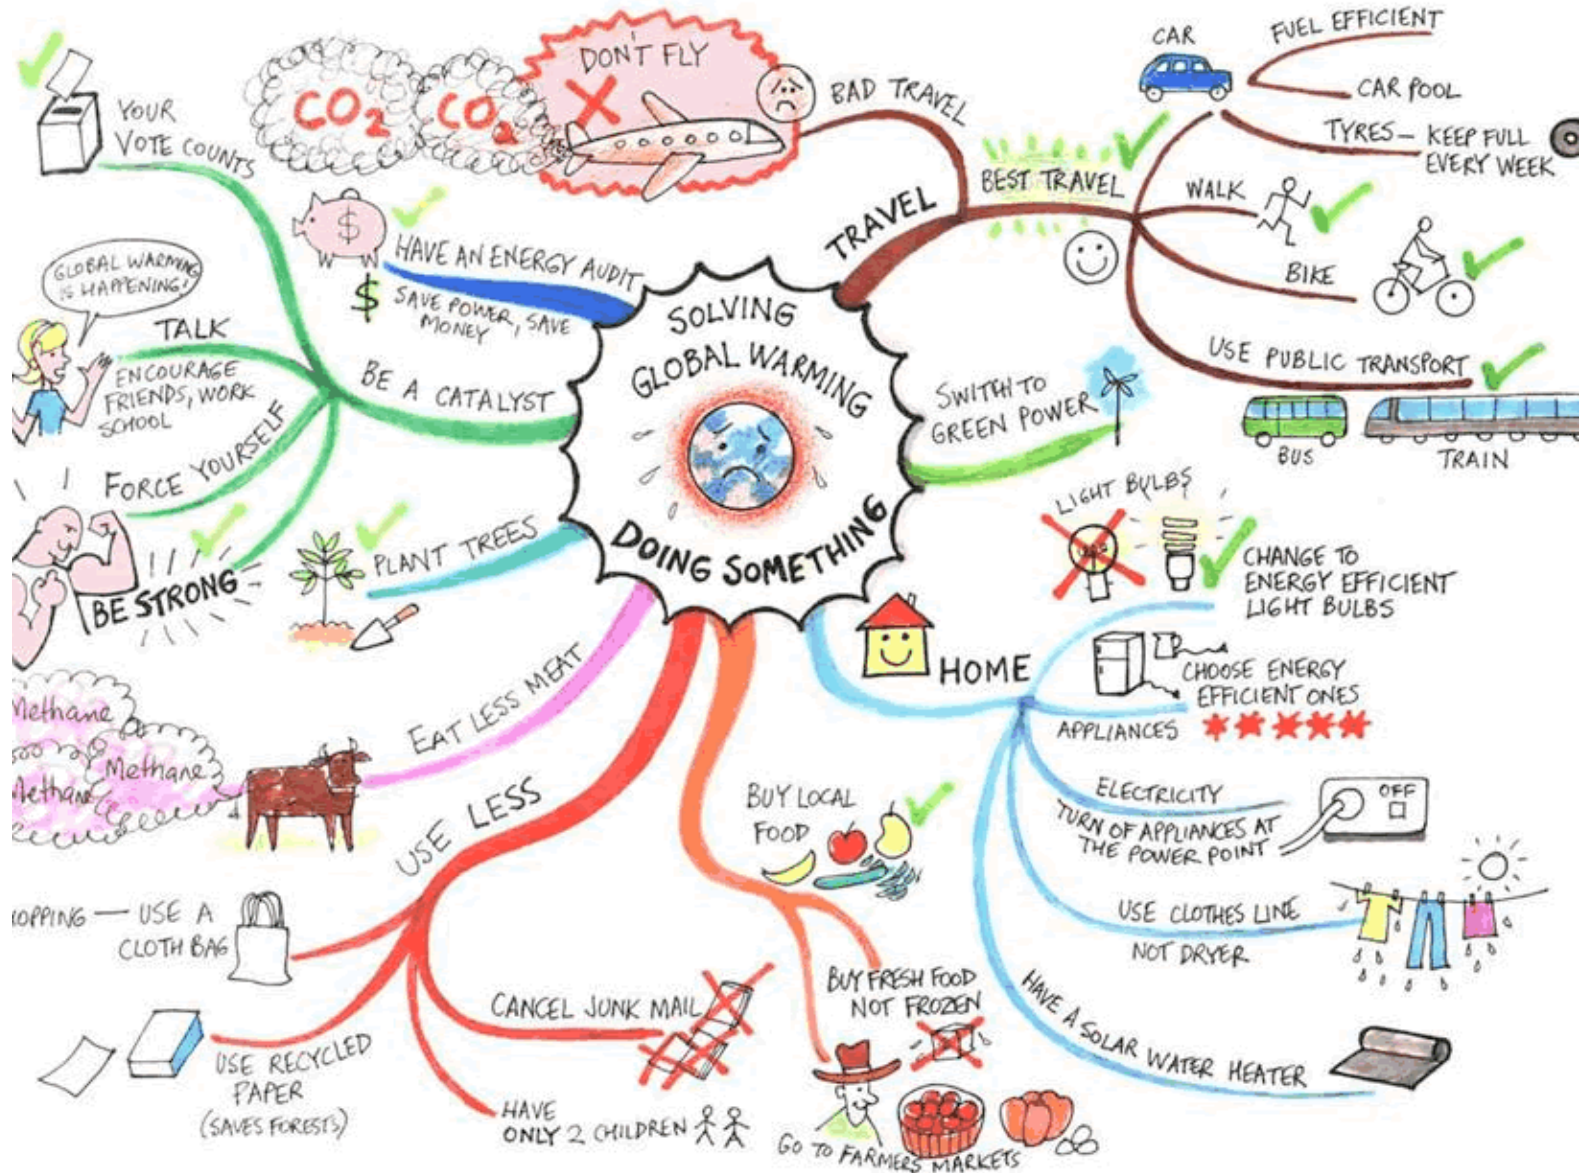 SOLVING
GLOBAL WARMING
DOING SOMETHING
TRAVEL
BAD TRAVEL
DON'T FLY
CO2
CO2
BEST TRAVEL
CAR
FUEL EFFICIENT
CAR POOL
TYRES — KEEP FULL
EVERY WEEK
WALK
BIKE
USE PUBLIC TRANSPORT
BUS
TRAIN
SWITCH TO
GREEN POWER
HOME
LIGHT BULBS
CHANGE TO
ENERGY EFFICIENT
LIGHT BULBS
CHOOSE ENERGY
EFFICIENT ONES
APPLIANCES
ELECTRICITY
TURN OF APPLIANCES AT
THE POWER POINT
OFF
USE CLOTHES LINE
NOT DRYER
HAVE A SOLAR WATER HEATER
BUY LOCAL
FOOD
BUY FRESH FOOD
NOT FROZEN
GO TO FARMERS MARKETS
USE LESS
OPPING — USE A
CLOTH BAG
USE RECYCLED
PAPER
(SAVES FORESTS)
CANCEL JUNK MAIL
HAVE
ONLY 2 CHILDREN
EAT LESS MEAT
Methane
Methane
Methane
PLANT TREES
BE A CATALYST
YOUR
VOTE COUNTS
TALK
ENCOURAGE
FRIENDS, WORK
SCHOOL
GLOBAL WARMING
IS HAPPENING!
FORCE YOURSELF
BE STRONG
HAVE AN ENERGY AUDIT
SAVE POWER, SAVE
MONEY
$
$